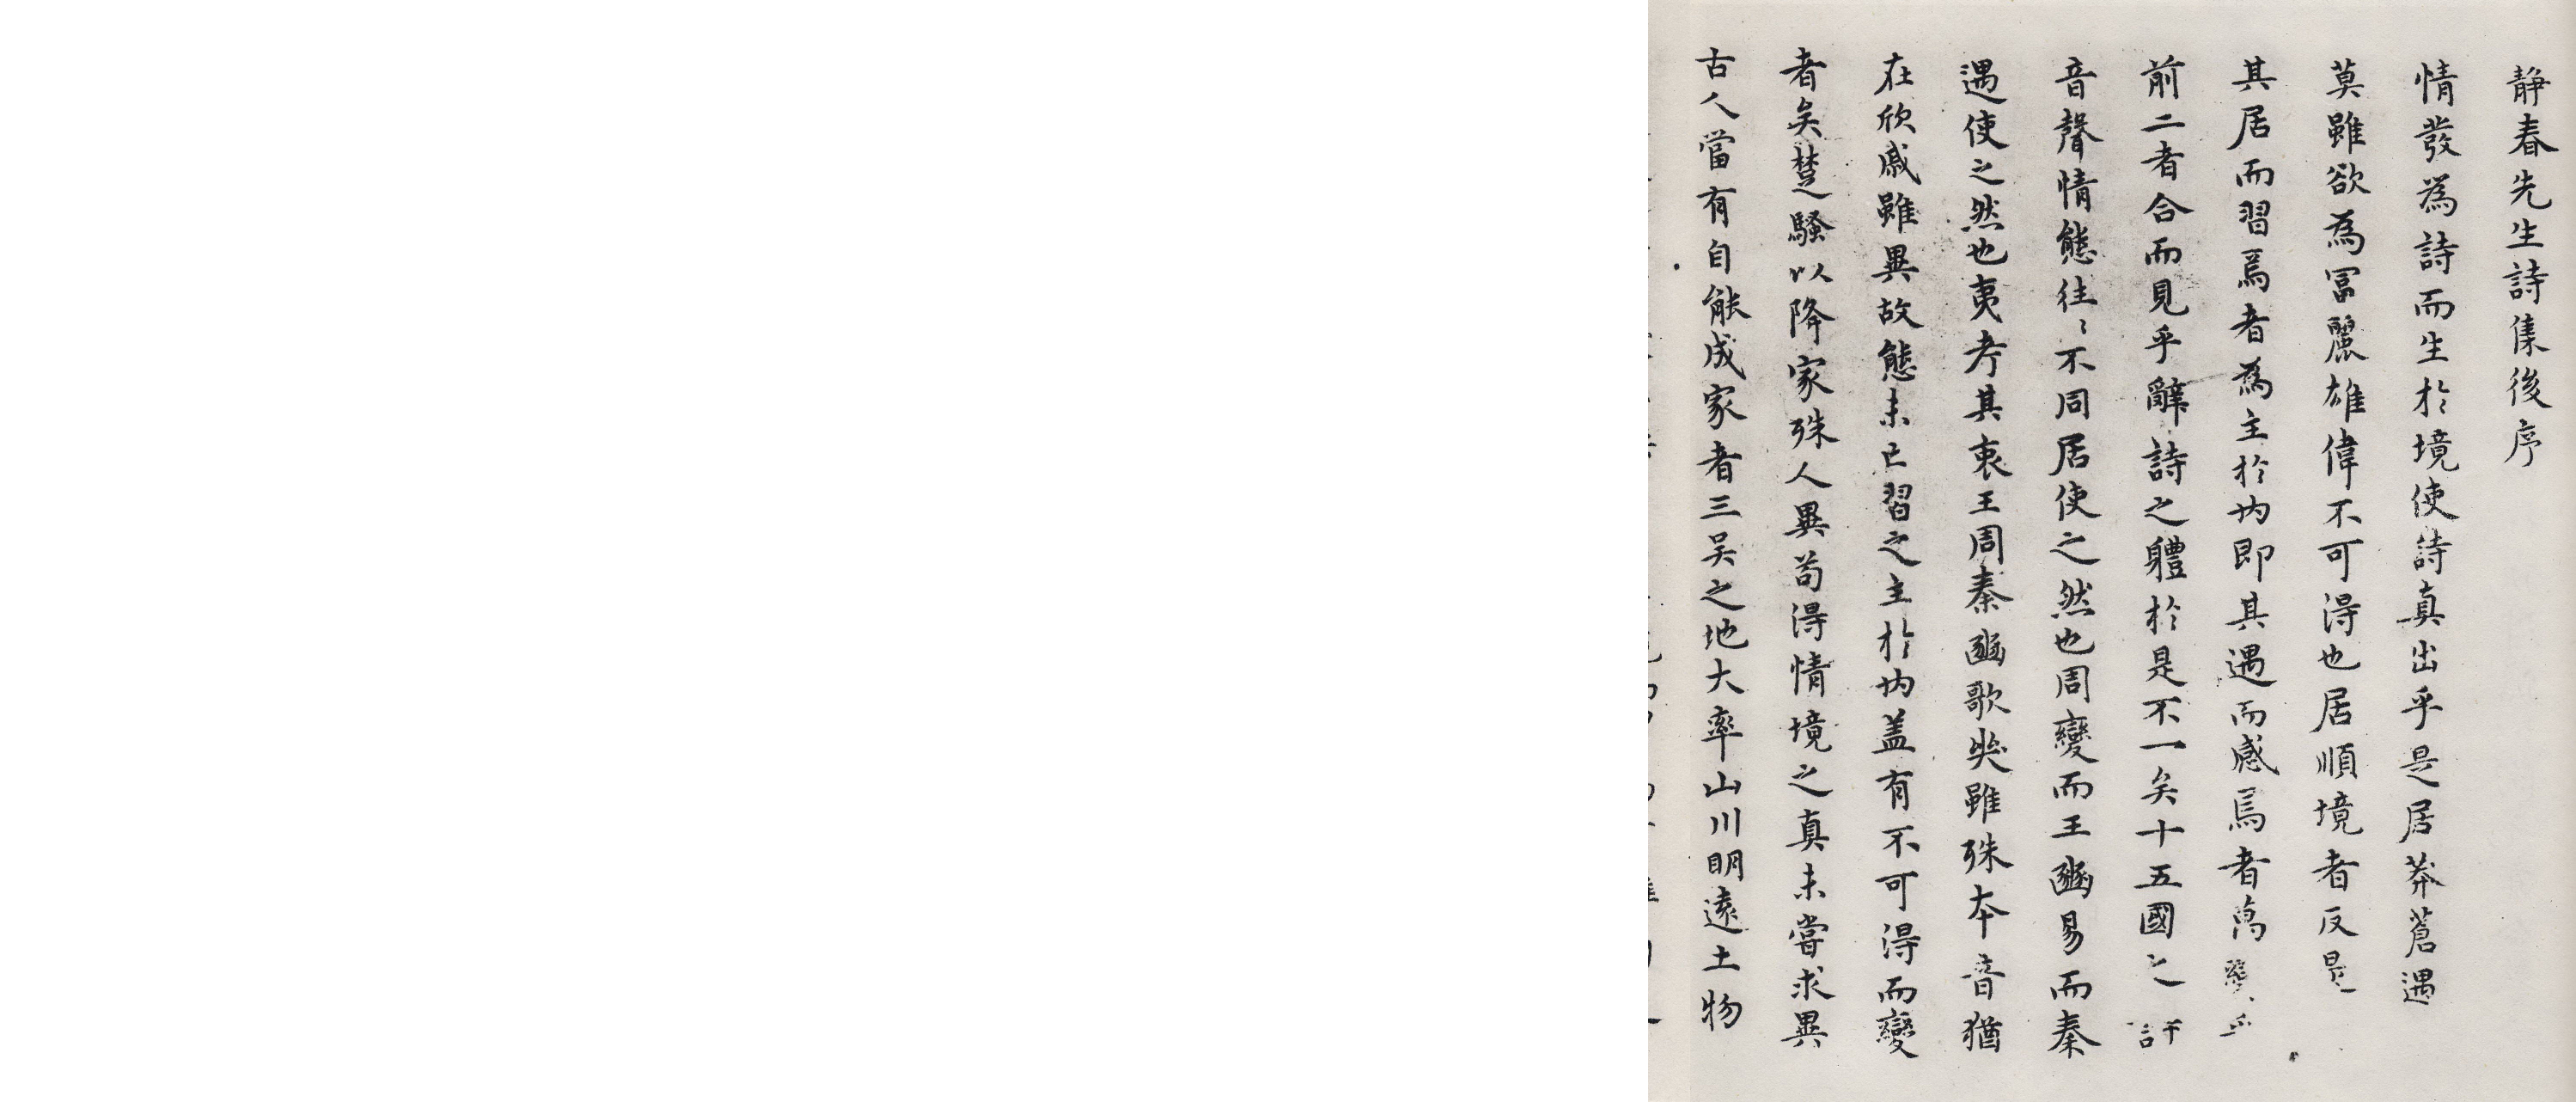 静春先生詩集後序
情發為詩而生於境使詩真出乎是居莽蒼遇
莫雖欲為冨麗雄偉不可得也居順境者反是
其居而習焉者為主於内即其遇而感焉者萬
前二者合而見乎辭詩之軆於是不一矣十五國之
音聲情態往〻不同居使之然也周變而王豳易而秦
遇使之然也夷考其衷王周秦豳歌哭雖殊本音猶
在欣戚雖異故態未已習之主於内盖有不可得而變
者矣楚騷以降家殊人異苟得情境之真未嘗求異
古人當有自能成家者三吴之地大率山川明遠土物